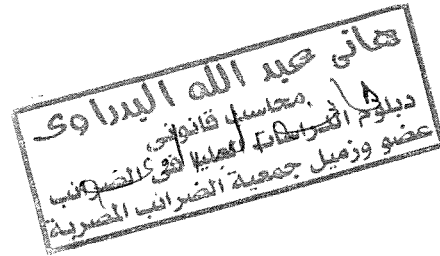 هانى عبد الله البدراوى
محاسب قانونى
دبلوم الدراسات العليا فى الضرائب
عضو وزميل جمعية الضرائب المصرية